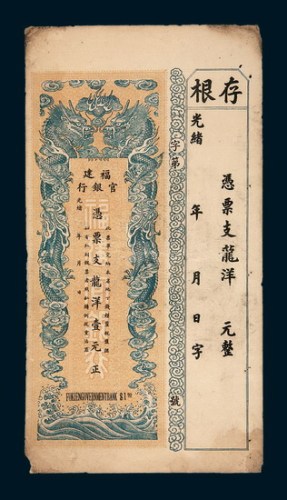 存根
憑票支龍洋 元整
光緒 年 月 日字
字第 號
福建
官銀行
憑票支龍洋壹元正
光緒 年 月 日
FOKIENGOVERNMENTBANK $1.00